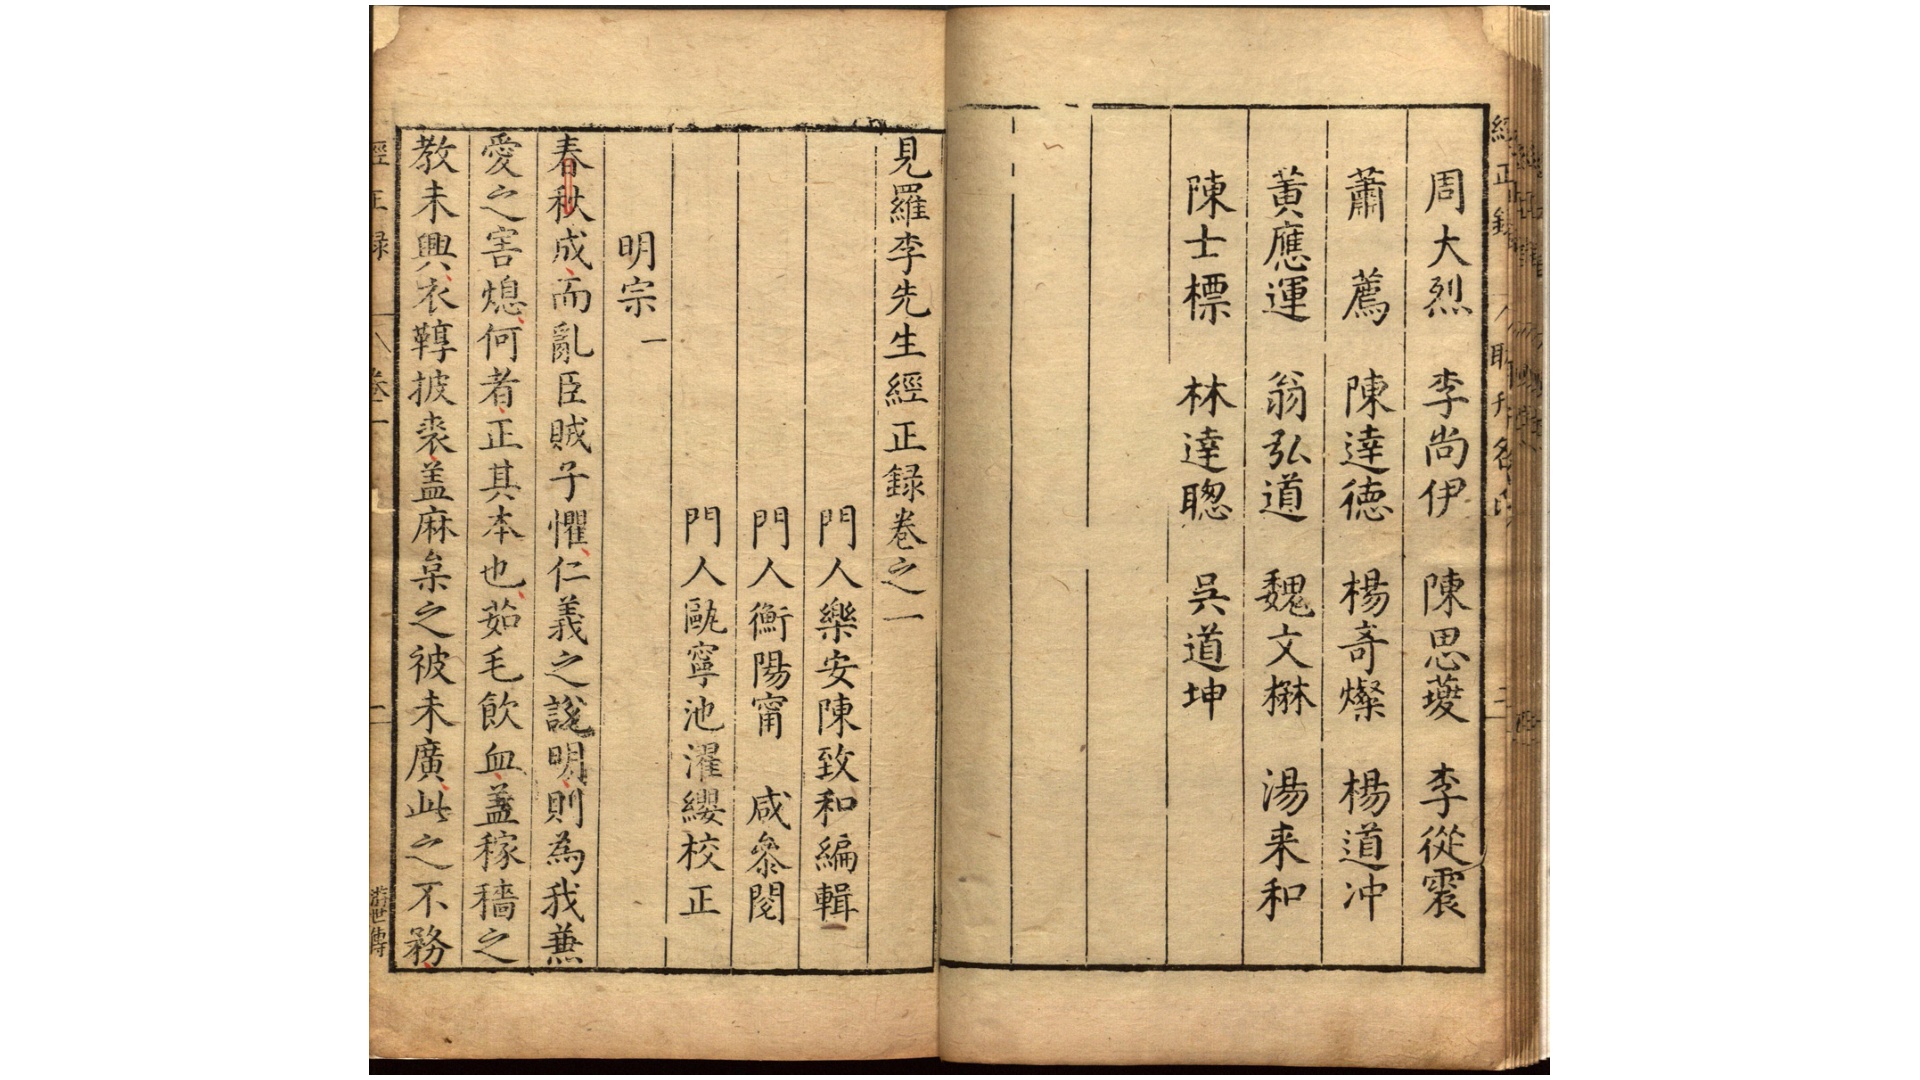 周大烈 李尚伊 陳思䕫 李從震
蕭 薦 陳逹德 楊奇燦 楊道冲
黄應運 翁弘道 魏文楙 湯来和
陳士標 林逹聦 吳道坤
見羅李先生經正録卷之一
門人樂安陳致和編輯
門人衡陽甯 咸叅閱
門人甌寧池濯纓校正
明宗一
春秋成而亂臣賊子懼仁義之說明則為我兼
愛之害熄何者正其本也茹毛飲血盖稼穡之
教未興衣鞟披裘盖麻枲之被未廣此之不務